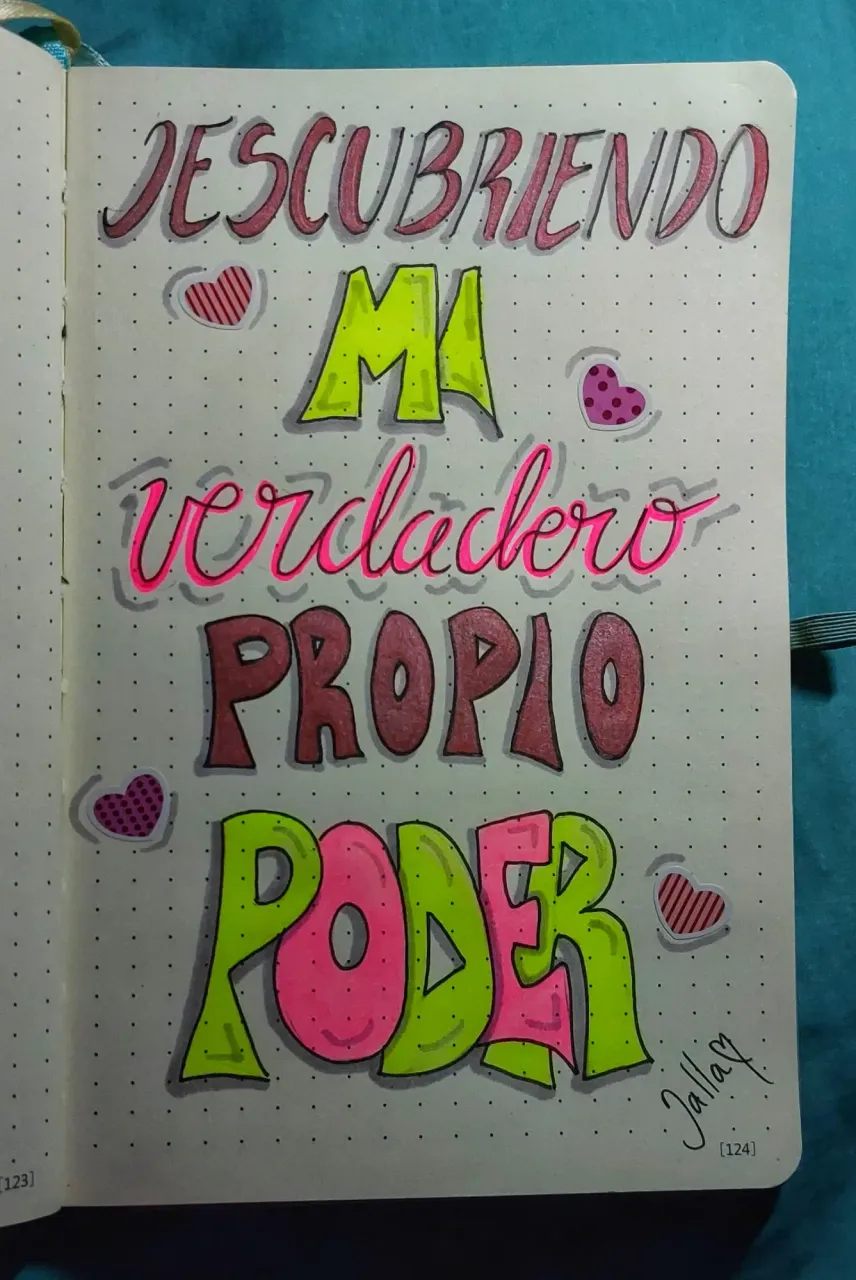 DESCUBRIENDO
MI
verdadero
PROPIO
PODER
Jalla
[124]
[123]